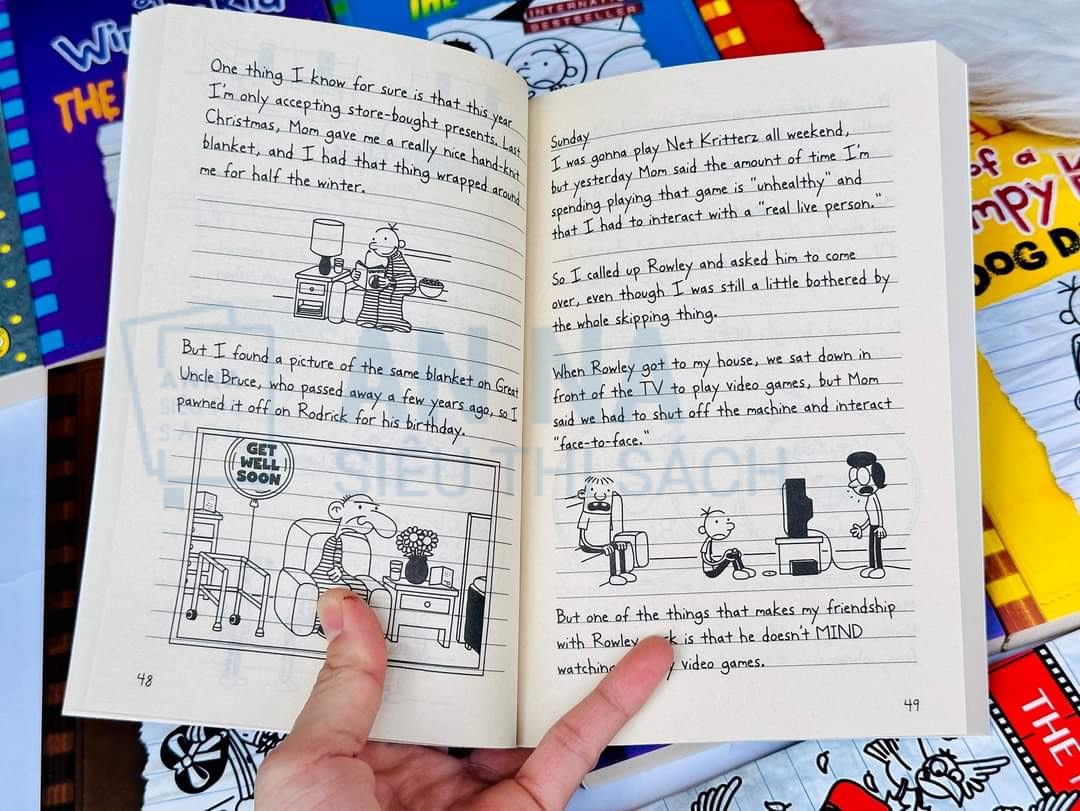 Wi
THE
THE
INTERNATI
BESTSELLER
of a
mpy
DOG D
THE
One thing I know for sure is that this year
I'm only accepting store-bought presents. Last
Christmas, Mom gave me a really nice hand-knit
blanket, and I had that thing wrapped around
me for half the winter.
But I found a picture of the same blanket on Great
Uncle Bruce, who passed away a few years ago, so I
pawned it off on Rodrick for his birthday.
GET
WELL
SOON
48
Sunday
I was gonna play Net Kritterz all weekend,
but yesterday Mom said the amount of time I'm
spending playing that game is "unhealthy" and
that I had to interact with a "real live person."
So I called up Rowley and asked him to come
over, even though I was still a little bothered by
the whole skipping thing.
When Rowley got to my house, we sat down in
front of the TV to play video games, but Mom
said we had to shut off the machine and interact
"face-to-face."
But one of the things that makes my friendship
with Rowley is that he doesn't MIND
watching video games.
49
AN NA
SIÊU THỊ SÁCH